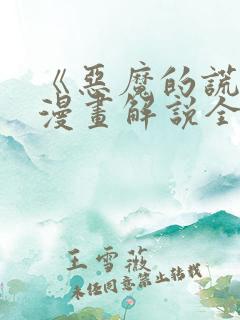 《惡魔的謊
漫畫解説全
王雪薇
未经同意禁止转载